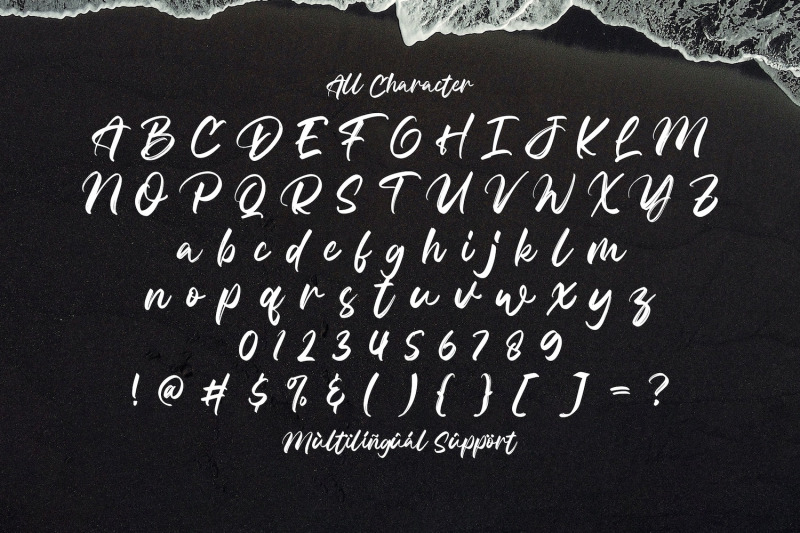 All Character
A B C D E F G H I J K L M
N O P Q R S T U V W X Y Z
a b c d e f g h i j k l m
n o p q r s t u v w x y z
0 1 2 3 4 5 6 7 8 9
! @ # $ % & ( ) { } [ ] = ?
Mùltilíñgüál Süppört